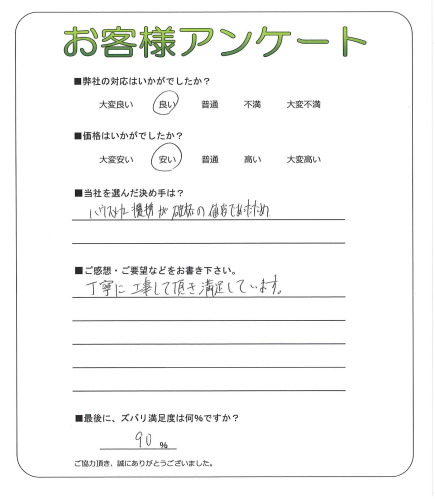 お客様アンケート
■弊社の対応はいかがでしたか？
大変良い 良い 普通 不満 大変不満
■価格はいかがでしたか？
大変安い 安い 普通 高い 大変高い
■当社を選んだ決め手は？
ハウスメーカー 提携が の であったため
■ご感想・ご要望などをお書き下さい。
丁寧に工事して頂き満足しています。
■最後に、ズバリ満足度は何%ですか？
90 %
ご協力頂き、誠にありがとうございました。